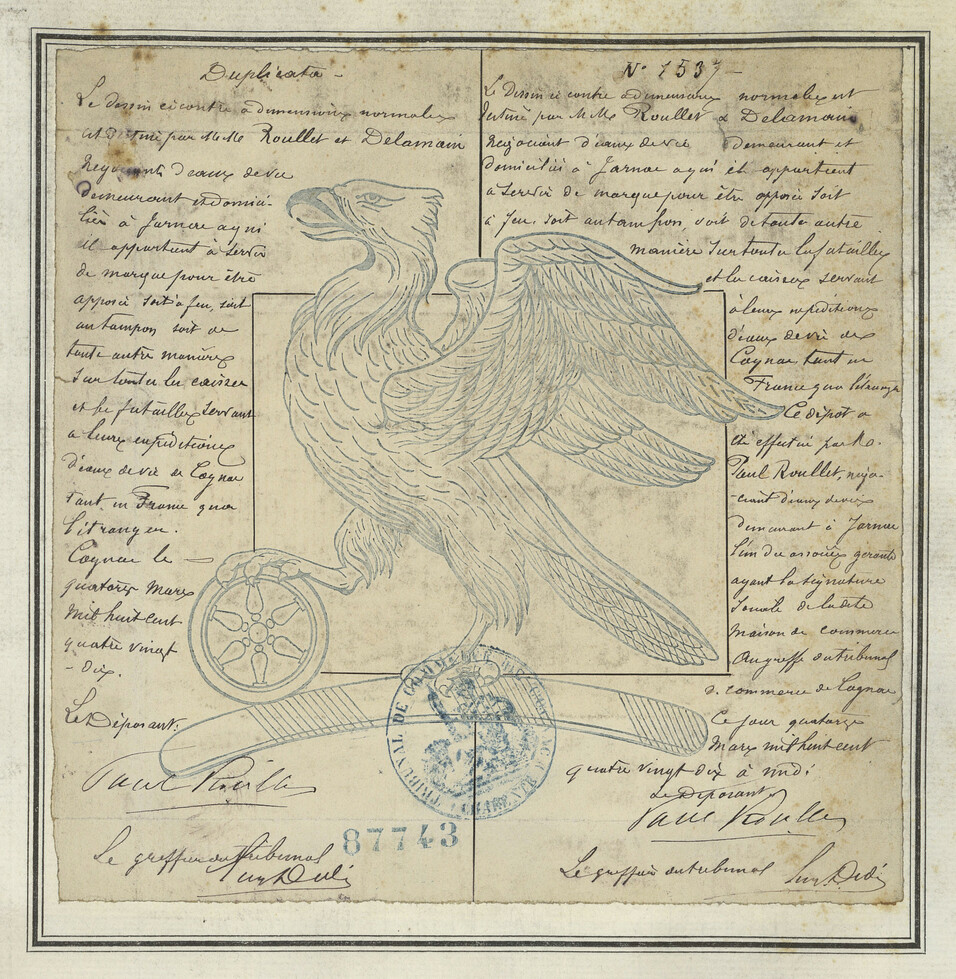 Duplicata -
Le dessin ci contre à dimensions normales
est destiné par M.M. Roullet et Delamain
Négociants d'eaux de vie
demeurant et domici-
liés à Jarnac aqui
il appartient à servir
de marque pour être
apposée soit à feu, soit
au tampon soit de
toute autre manière
sur toutes les caisses
et les futailles servant
à leurs expéditions
d'eaux de vie de Cognac
tant en France qu'a
l'étranger.
Cognac le
quatorze Mars
mil huit cent
quatre vingt
- dix.
Le Déposant:
Paul Roullet
Le greffier du tribunal
N° 1537 -
Le dessin ci contre à dimensions normales est
destiné par M.M. Roullet & Delamain
Négociant d'eaux de vie demeurant et
domiciliés à Jarnac aqui il appartient
a servir de marque pour être apposée soit
à feu, soit au tampon, soit de toute autre
manière sur toutes les futailles
et les caisses servant
à leurs expéditions
d'eaux de vie de
Cognac tant en
France qu'a l'étranger
Le dépôt a
été effectué par M.
Paul Roullet, négo-
-ciant d'eaux de vie
demeurant à Jarnac
l'un des associés gérants
ayant la signature
sociale de la dite
maison de commerce
Au greffe du tribunal
de commerce de Cognac
Ce jour quatorze
Mars mil huit cent
quatre vingt dix à midi
Le Déposant
Paul Roullet
Le greffier du tribunal
TRIBUNAL DE COMMERCE DE COGNAC
CHARENTE
87743